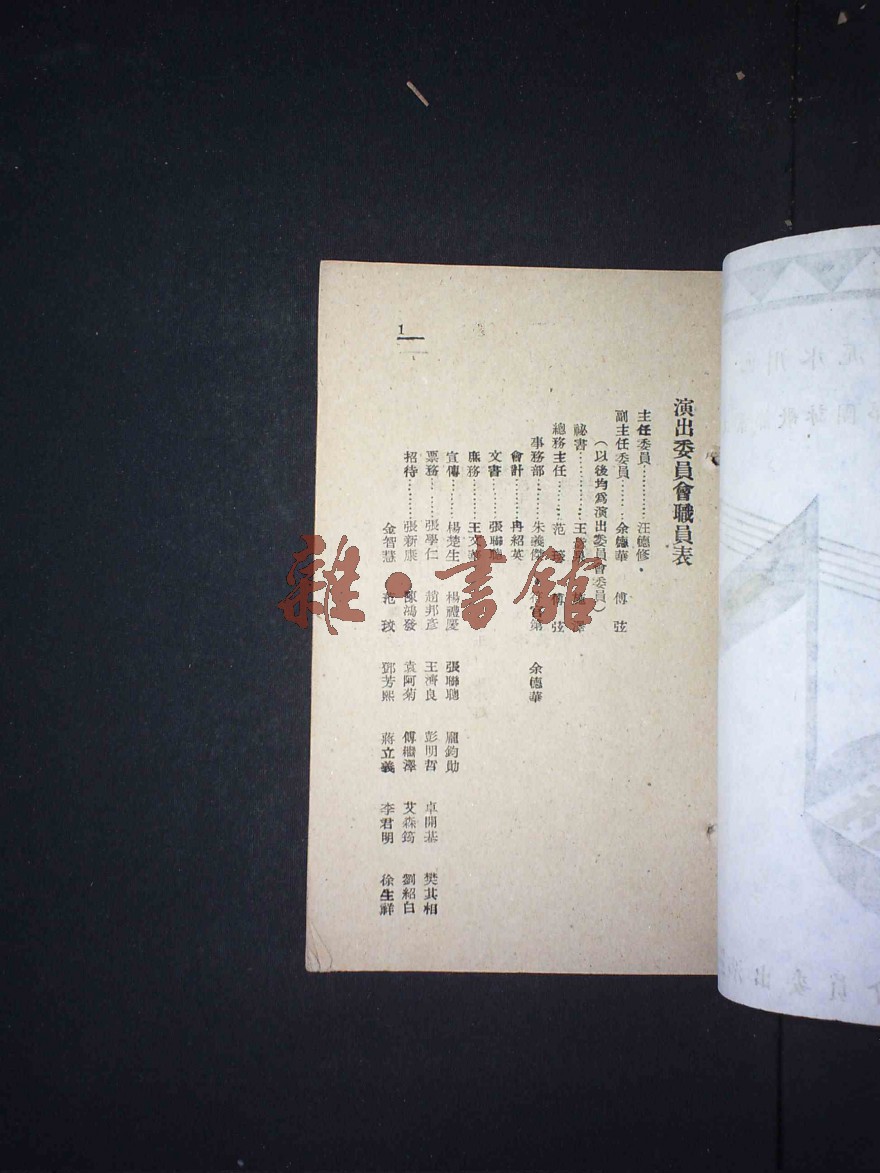 演出委員會職員表
主任委員…………汪德修
副主任委員……余德華 傅弦
（以後均爲演出委員會委員）
祕書…………王
總務主任……范 傅弦
事務部………朱義 第 余德華
會計…………冉紹英
文書…………張聯聰
庶務…………王文
宣傳…………楊楚生 楊禮慶 張聯聰 龐鈞勛
票務…………張學仁 趙邦彥 王濟良 彭明哲 卓開基 樊其相
招待…………張新康 陳鴻發 袁阿菊 傅繼澤 艾森筠 劉紹白
金智慧 范玫 鄧芳熙 蔣立義 李君明 徐生祥
1
雜·書館